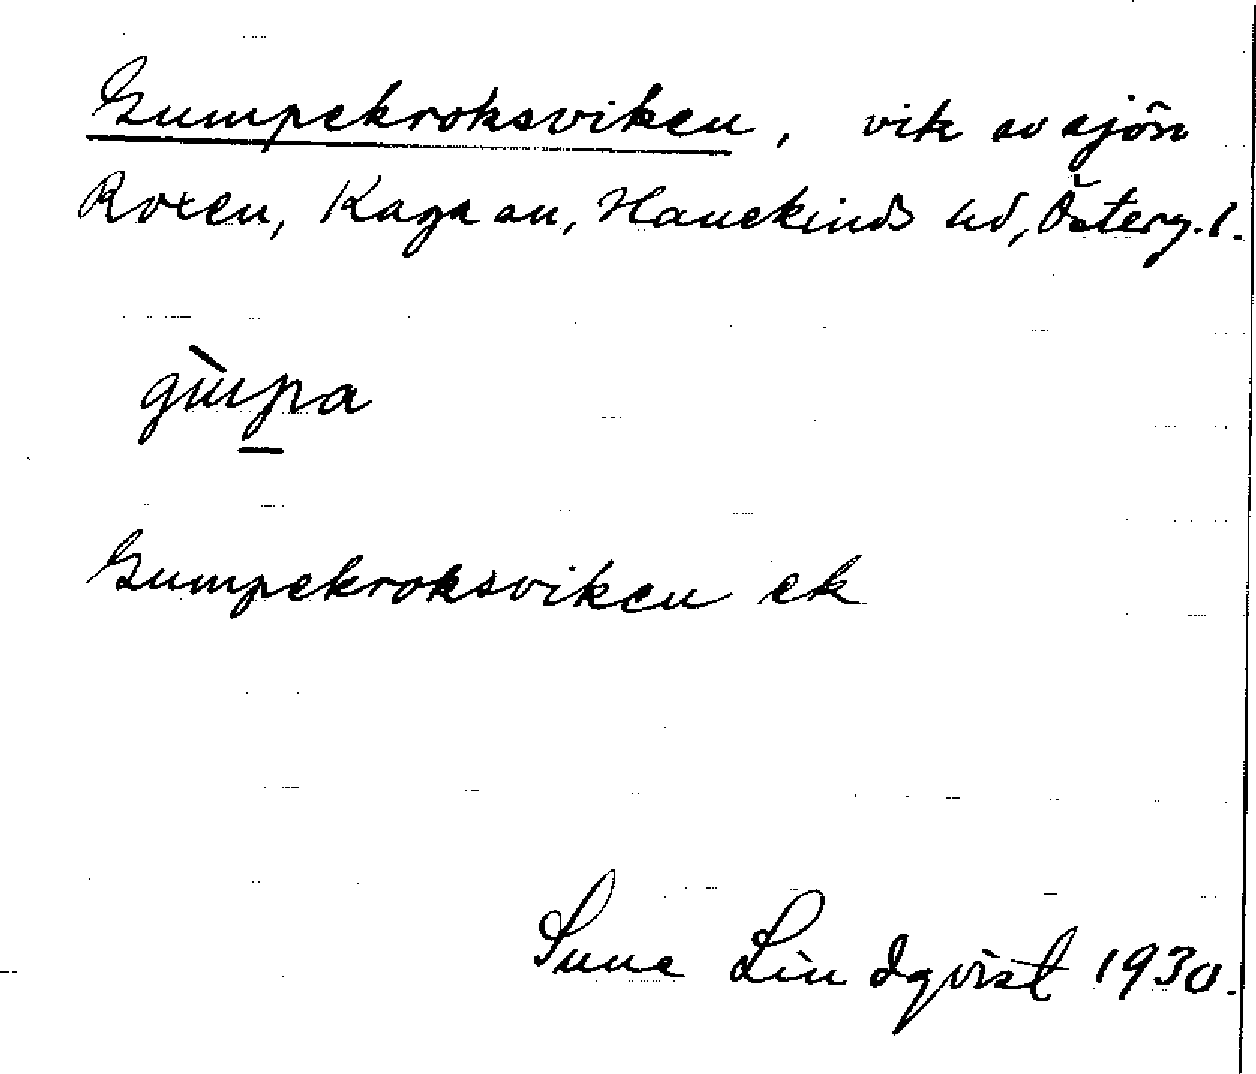 Gumpekroksviken, vik av sjön
Roxen, Kaga sn, Hanekinds hd, Österg. l.
Gumpekroksviken ek
Sune Lindqvist 1930.